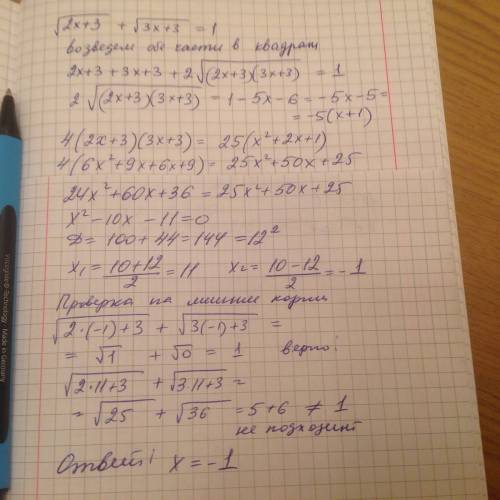 √(2x+3) + √(3x+3) = 1
возведем обе части в квадрат
2x+3+3x+3+2√((2x+3)(3x+3)) = 1
2√((2x+3)(3x+3)) = 1-5x-6 = -5x-5=
= -5(x+1)
4(2x+3)(3x+3) = 25(x²+2x+1)
4(6x²+9x+6x+9) = 25x²+50x+25
24x²+60x+36 = 25x²+50x+25
x²-10x-11=0
D = 100+44=144=12²
x₁ = (10+12)/2 = 11 x₂ = (10-12)/2 = -1
Проверка на лишние корни
√(2·(-1)+3) + √(3(-1)+3) =
= √1 + √0 = 1 верно!
√(2·11+3) + √(3·11+3) =
= √25 + √36 = 5+6 ≠ 1
не подходит
Ответ: x = -1